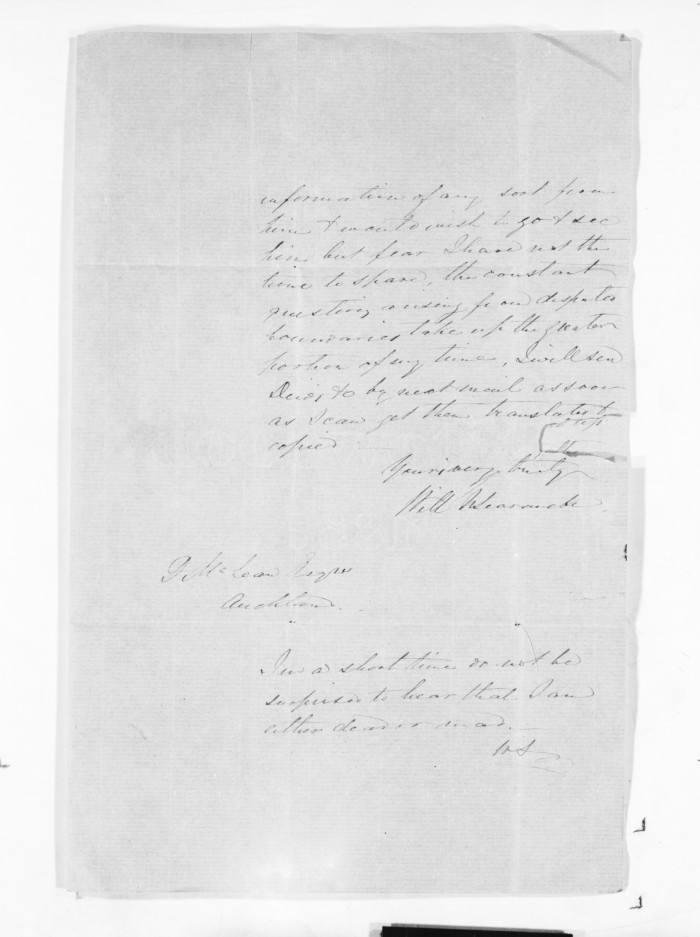 information of any sort from
him & would wish to go & see
him but fear I have not the
time to spare, the constant
questions arising from disputed
boundaries take up the greater
portion of my time, I will send
Deeds &c by next mail as soon
as I can get them translated &
copied
Yours very truly
Will
D. McLean Esqre
Auckland.
In a short time do not be
surprised to hear that I am
either dead or mad. —
WS